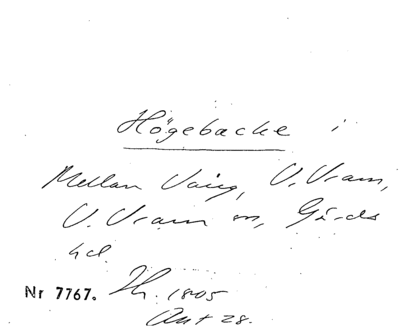 Högebacke i
Mellan Vång, V. Vram,
V. Vram sn, Gärds
hd.
Nr 7767. Th. 1805
Akt 28.